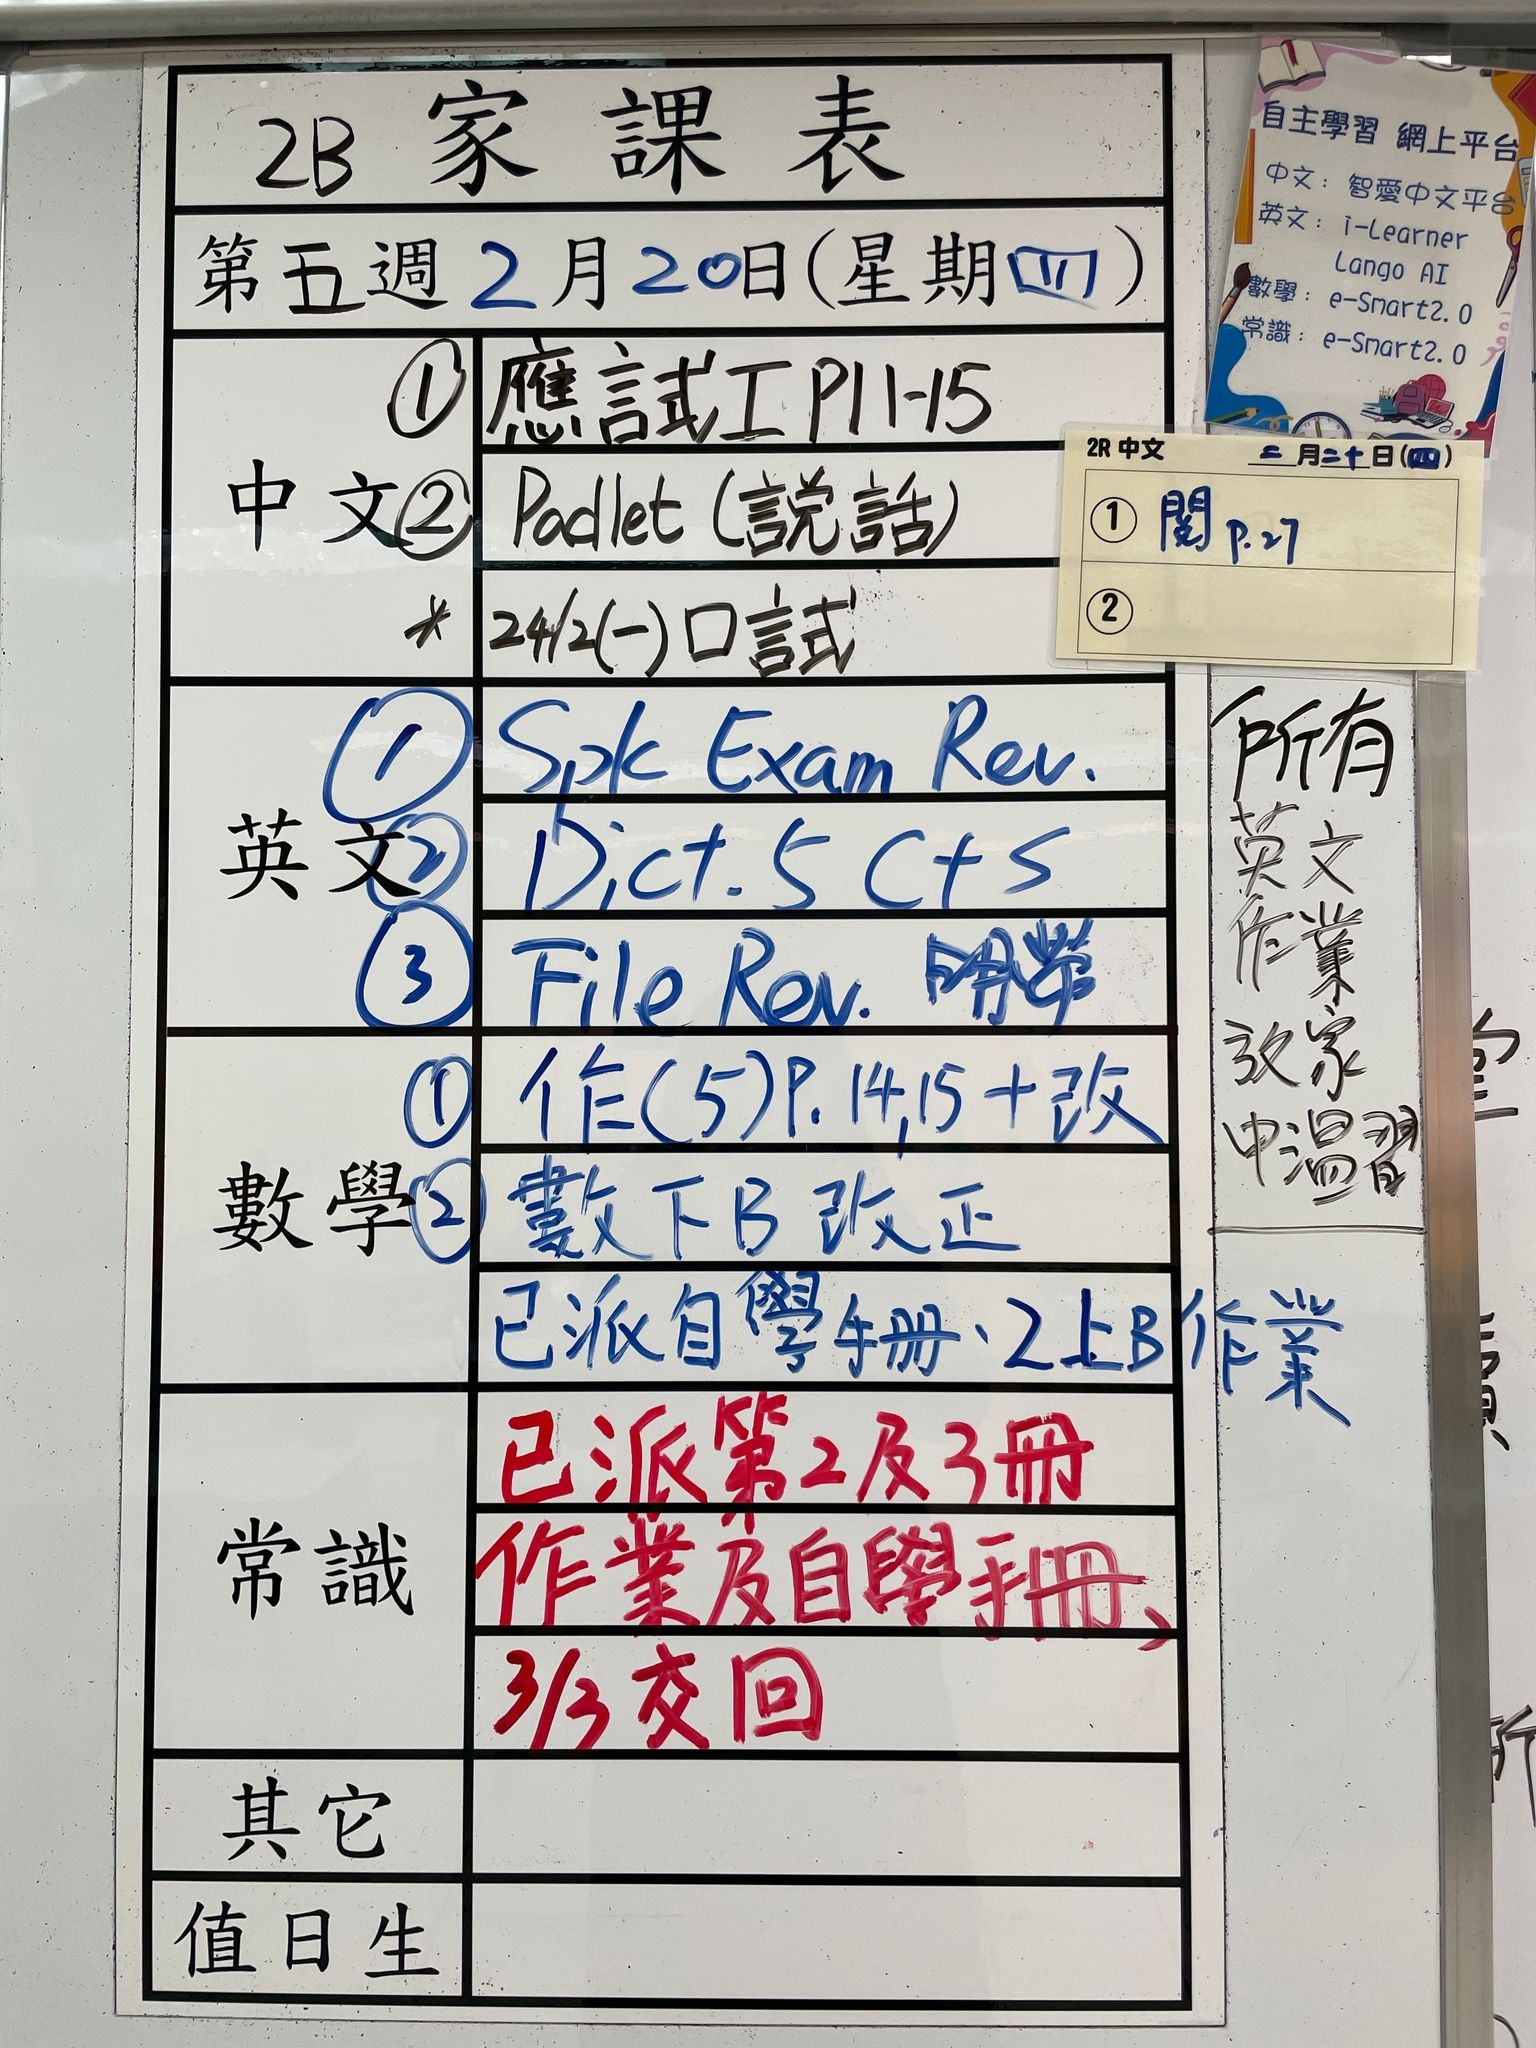 2B 家課表
第五週 2月20日(星期四)
中文
① 應試工 P11-15
② Padlet (説話)
* 24/2(一)口試
英文
① Spk Exam Rev.
② Dict. 5 C+S
③ File Rev.
數學
① 作(5)P.14,15+改
② 數下B 改正
已派自學手冊、2上B作業
常識
已派第2及3冊
作業及自學手冊、
3/3交回
其它
值日生
自主學習 網上平台
中文：智愛中文平台
英文：i-Learner
Lango AI
數學：e-Smart2.0
常識：e-Smart2.0
2R 中文 二月二十日(四)
① 閱 P.27
②
所有
英文
作業
放家
中溫習